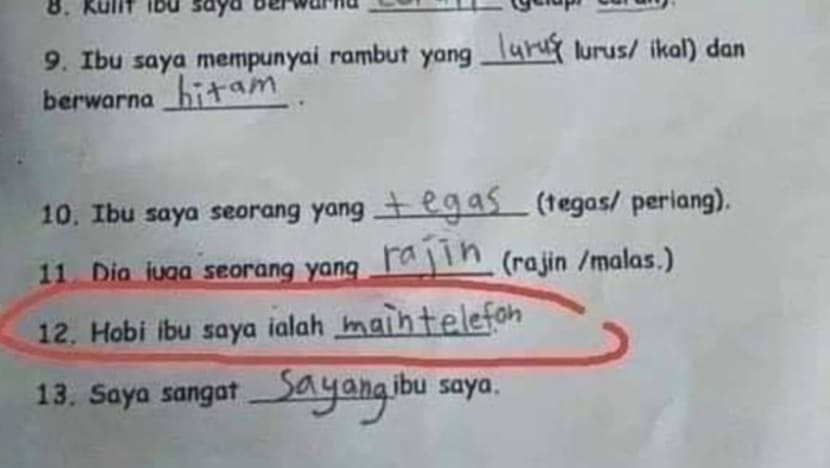 8. Kulit ibu saya berwarna
9. Ibu saya mempunyai rambut yang lurus ( lurus/ ikal) dan
berwarna hitam .
10. Ibu saya seorang yang tegas (tegas/ periang).
11. Dia juga seorang yang rajin (rajin /malas.)
12. Hobi ibu saya ialah main telefon
13. Saya sangat Sayang ibu saya.